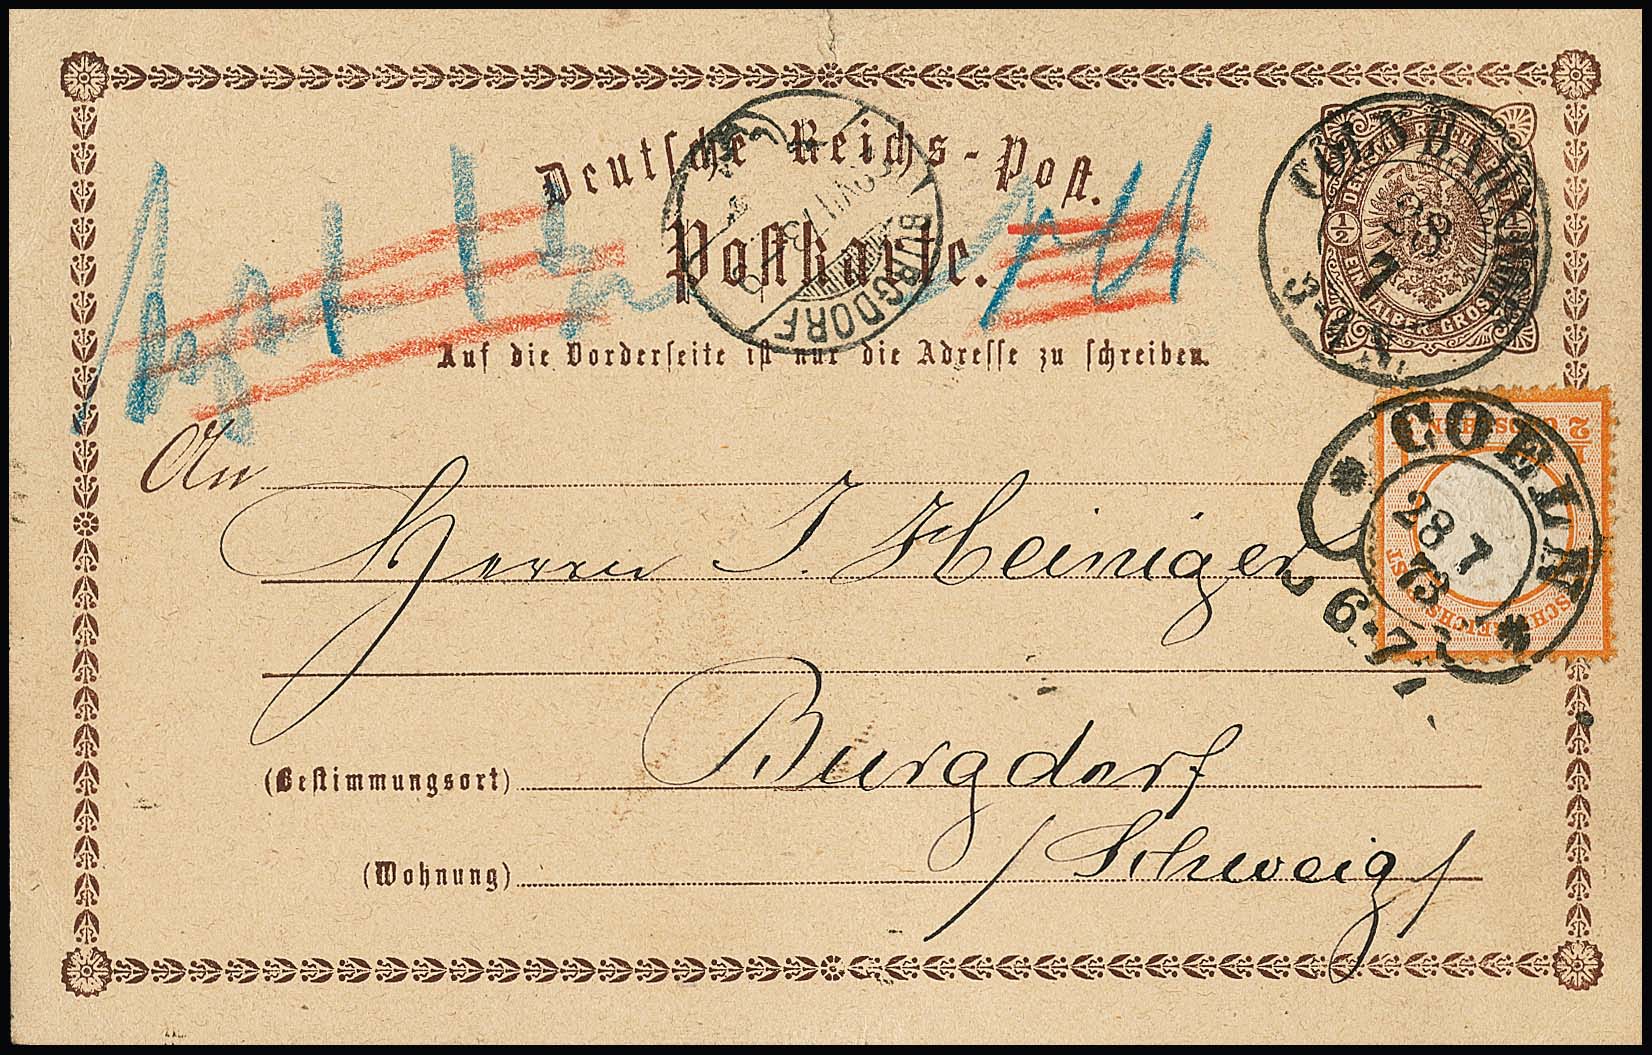 Deutsche Reichs-Post.
Postkarte.
Auf die Vorderseite ist nur die Adresse zu schreiben.
BURGDORF
28
7
EIN HALBER GROSCHEN
1/2
COELN
28 7
73
6-7
1/2 GROSCHEN
An
Herrn J. Heiniger
(Bestimmungsort) Burgdorf
(Wohnung) /Schweiz/